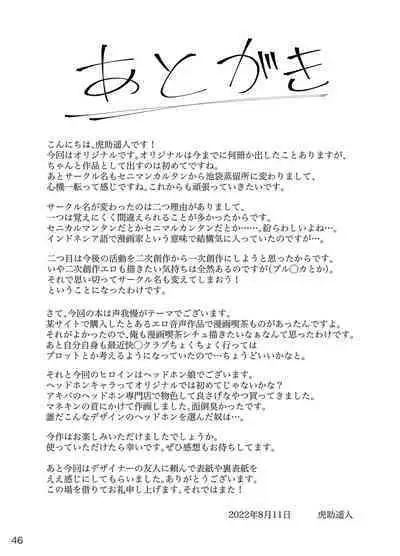 あとがき
こんにちは、虎助遥人です!
今回はオリジナルです。オリジナルは今までに何冊か出したことありますが、
ちゃんと作品として出すのは初めてですね。
あとサークル名もセニマンカルタンから池袋蒸留所に変わりまして、
心機一転って感じですね。これからも頑張っていきたいです。
サークル名が変わったのは二つ理由がありまして、
一つは覚えにくく間違えられることが多かったからです。
セニカルマンタンだとかセニマルカンタンだとか……。紛らわしいよね…。
インドネシア語で漫画家という意味で結構気に入っていたのですが…。
二つ目は今後の活動を二次創作から一次創作にしようと思ったからです。
いや二次創作エロも描きたい気持ちは全然あるのですが(ブル◯カとか)。
それで思い切ってサークル名も変えてしまおう!
ということになったわけです。
さて、今回の本は声我慢がテーマでございます。
某サイトで購入したとあるエロ音声作品で漫画喫茶ものがあったんですよ。
それがよかったので、俺も漫画喫茶シチュ描きたいなぁなんて思ったわけです。
あと自分自身も最近快◯クラブちょくちょく行っては
プロットとか考えるようになっていたので…ちょうどいいかなと。
それと今回のヒロインはヘッドホン娘でございます。
ヘッドホンキャラってオリジナルでは初めてじゃないかな?
アキバのヘッドホン専門店で物色して良さげなやつ買ってきました。
マネキンの首にかけて作画しました。面倒臭かったです。
誰だこんなデザインのヘッドホンを選んだ奴は…。
今作はお楽しみいただけましたでしょうか。
使っていただけたら幸いです。ぜひ感想もお待ちしてます。
あと今回はデザイナーの友人に頼んで表紙や裏表紙を
ええ感じにしてもらいました。ありがとうございます。
この場を借りてお礼申し上げます。それではまた!
2022年8月11日 虎助遥人
46